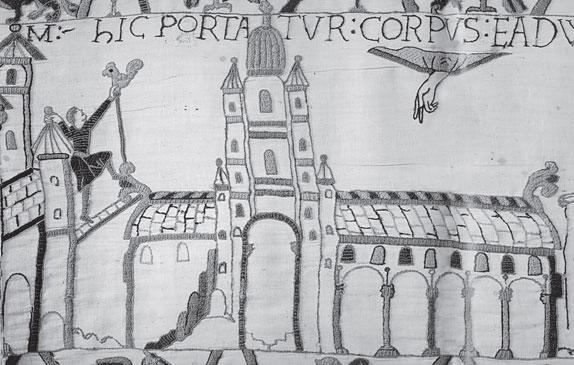 M:- hIC PORTATVR:CORPVS:EADV